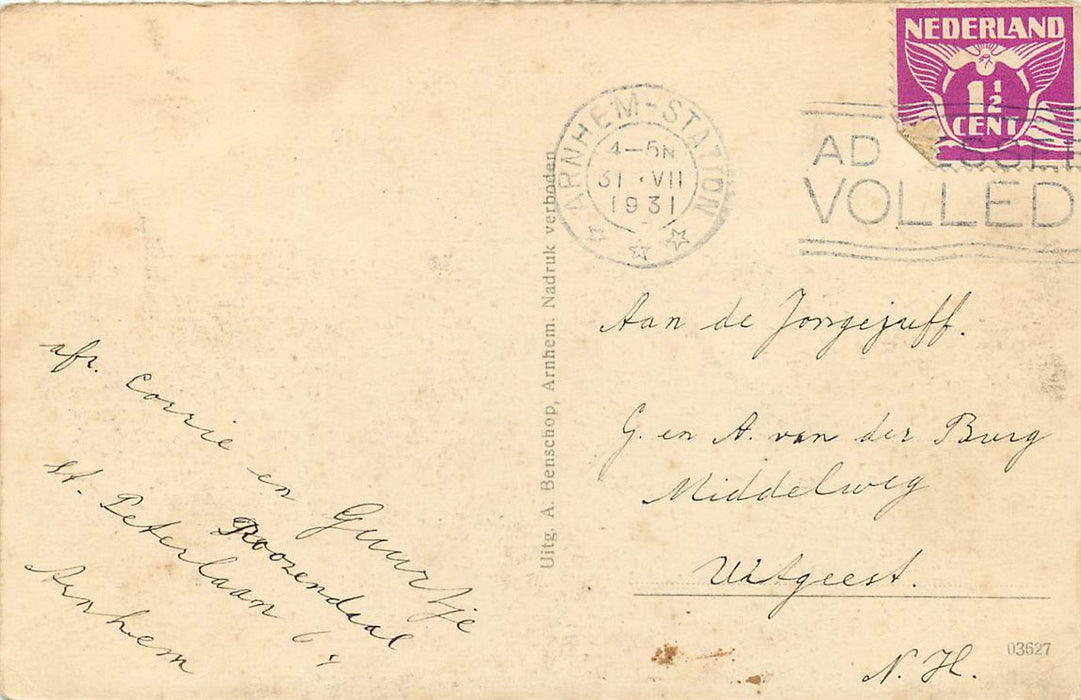 NEDERLAND
1½
CENT
ARNHEM-STATION
4-5N
31.VII
1931
AD ESSEE
VOLLED
Uitg. A. Benschop, Arnhem. Nadruk verboden
Aan de Jongejuff.
G. en A. van der Burg
Middelweg
Uitgeest.
N. H.
03627
afz. Corrie en Guurtje
Roozendaal
St. Peterlaan
Arnhem